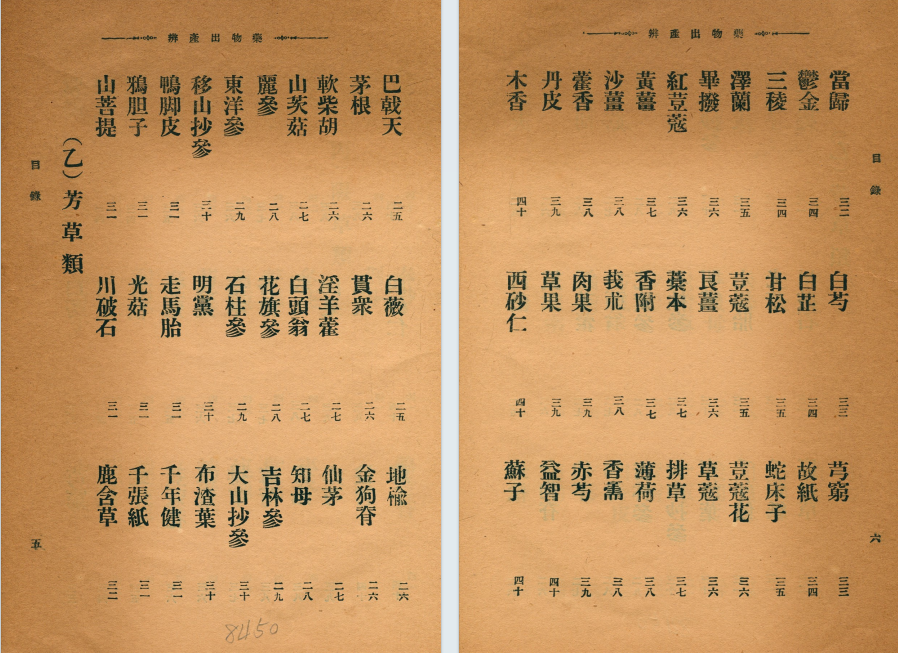 藥物出產辨
巴戟天 二五 白薇 二五 地榆 二六
茅根 二六 貫衆 二六 金狗脊 二六
軟柴胡 二六 淫羊藿 二七 仙茅 二七
山茨菇 二七 白頭翁 二七 知母 二八
麗參 二八 花旗參 二八 吉林參 二九
東洋參 二九 石柱參 二九 大山抄參 三十
移山抄參 三十 明黨 三十 布渣葉 三十
鴨脚皮 三一 走馬胎 三一 千年健 三一
鴉胆子 三一 光菇 三一 千張紙 三一
山菩提 三一 川破石 三一 鹿含草 三二
(乙)芳草類
目錄 五
8450
藥物出產辨
目錄 六
當歸 三二 白芍 三三 芎窮 三三
鬱金 三四 白芷 三四 故紙 三四
三稜 三四 甘松 三五 蛇床子 三五
澤蘭 三五 荳蔻 三五 荳蔻花 三六
畢撥 三六 良薑 三六 草蔻 三六
紅荳蔻 三六 藁本 三七 排草 三七
黃薑 三七 香附 三七 薄荷 三八
沙薑 三八 莪朮 三八 香薷 三八
藿香 三八 肉果 三九 赤芍 三九
丹皮 三九 草果 三九 益智 四十
木香 四十 西砂仁 四十 蘇子 四十